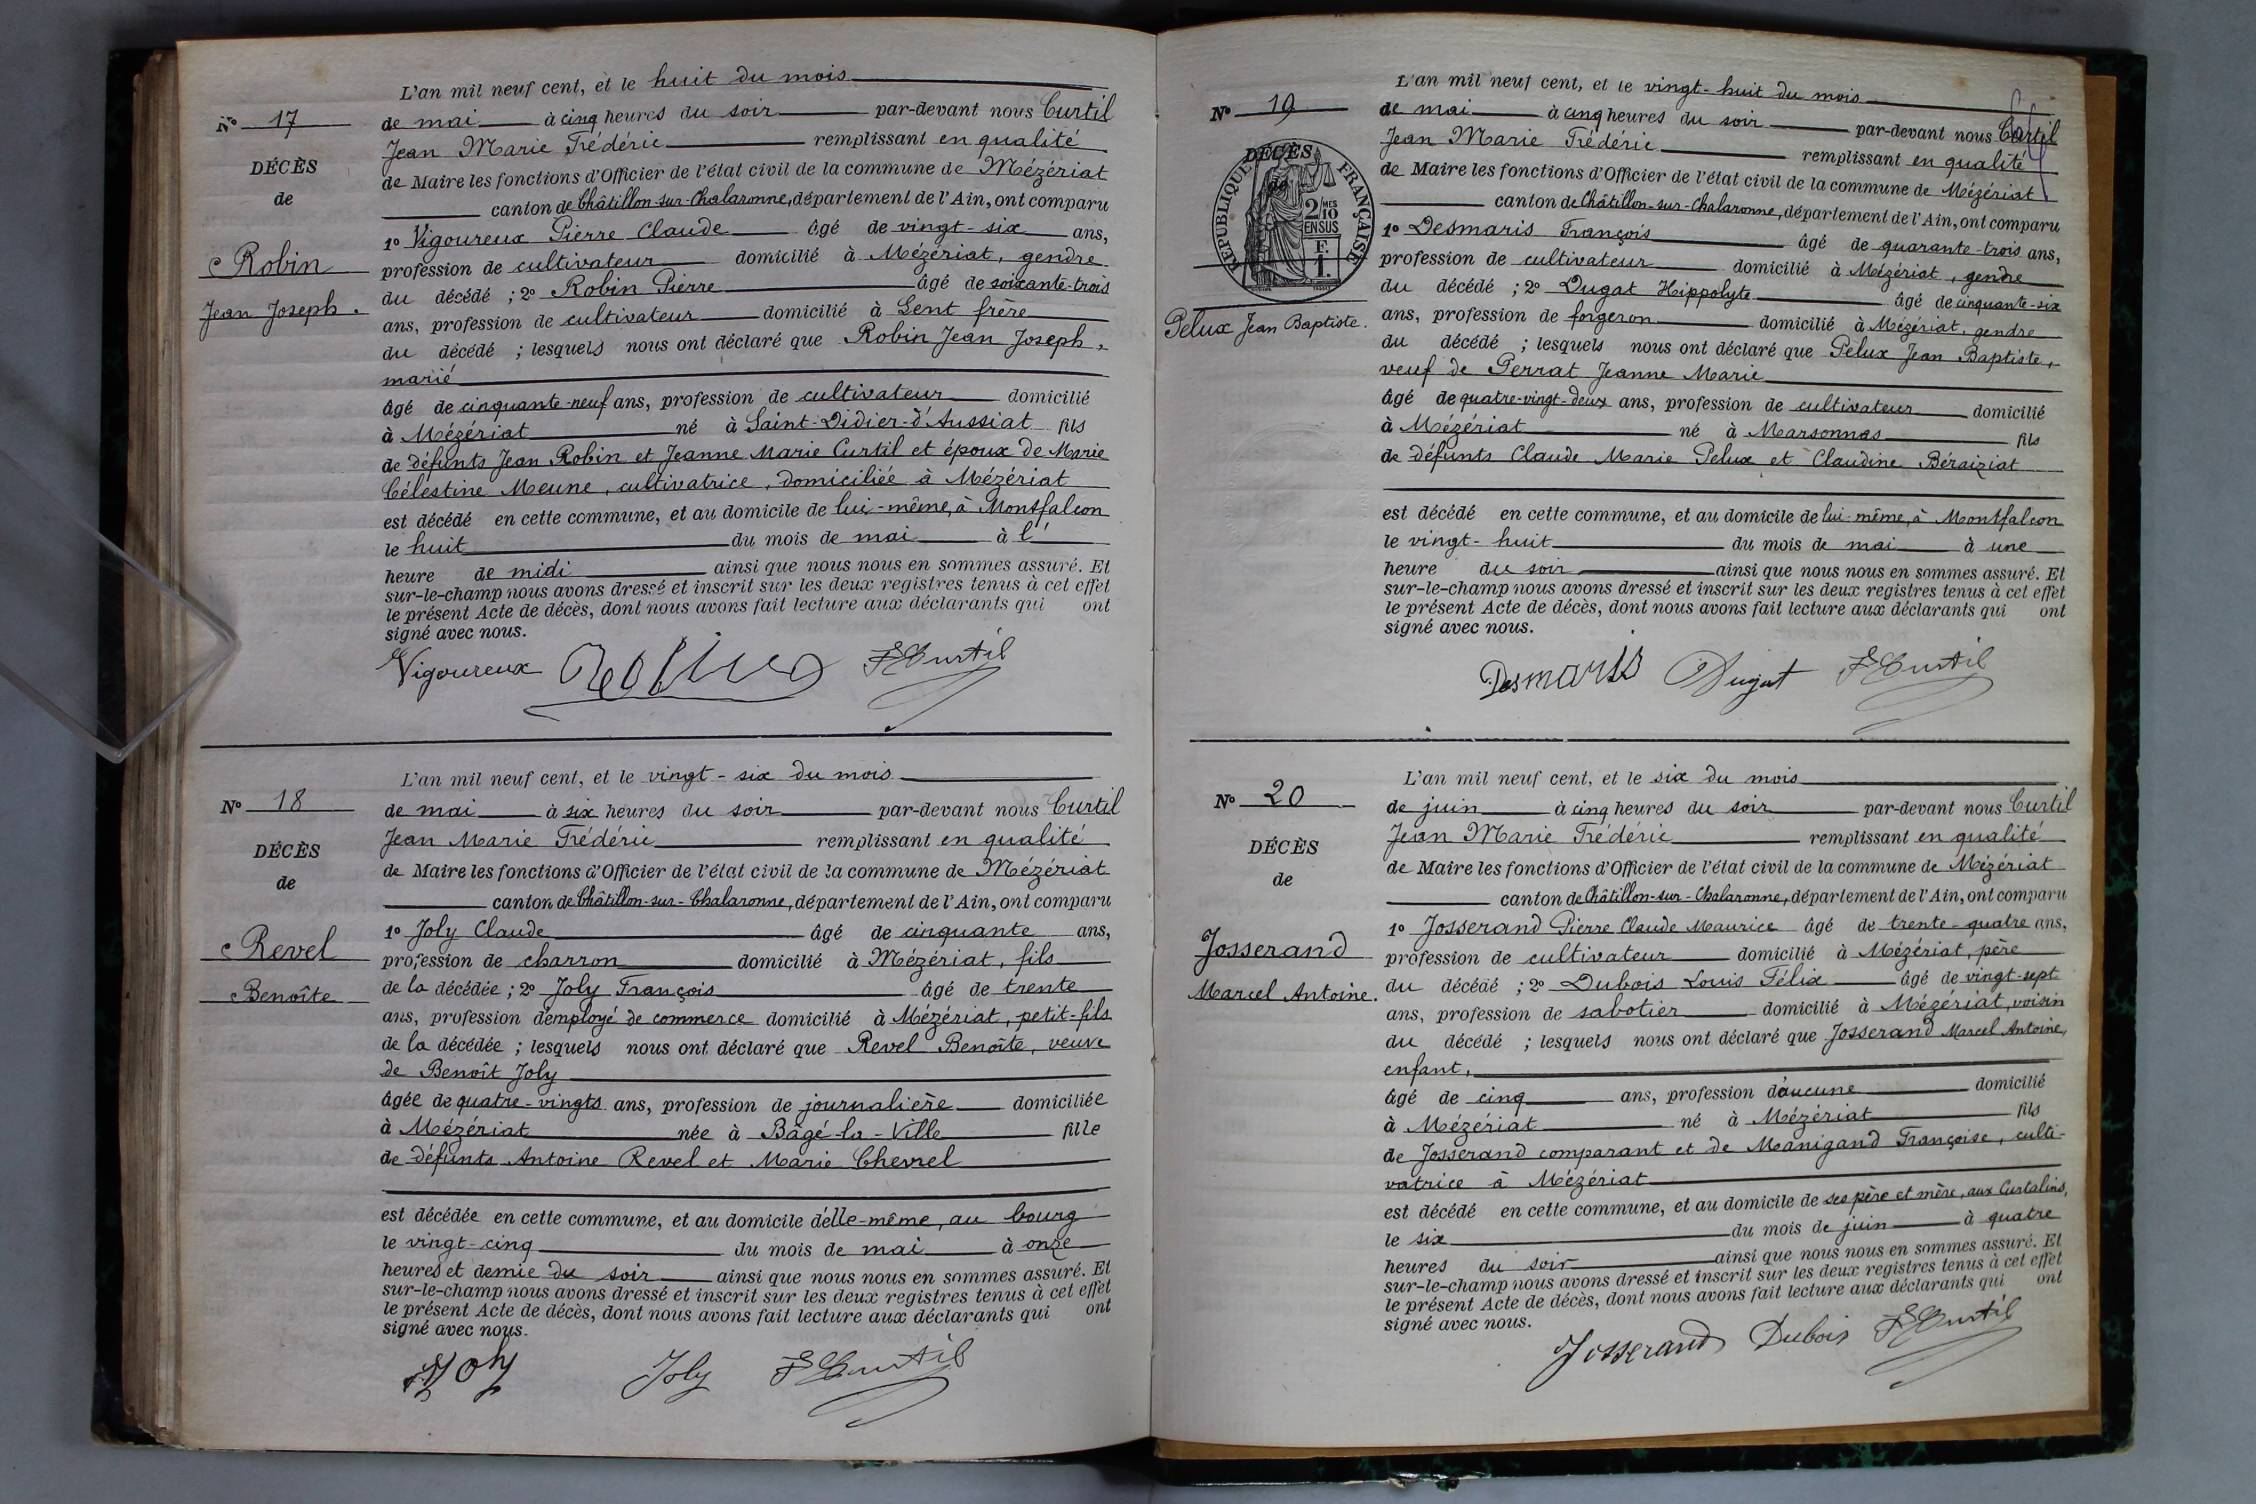 L'an mil neuf cent, et le huit du mois
N° 17
de mai à cinq heures du soir par-devant nous Curtil
Jean Marie Frédéric remplissant en qualité
DÉCÈS
de Maire les fonctions d'Officier de l'état civil de la commune de Mézériat
de
canton de Châtillon-sur-Chalaronne, département de l'Ain, ont comparu
1° Vigoureux Pierre Claude âgé de vingt-six ans,
Robin
profession de cultivateur domicilié à Mézériat, gendre
du décédé ; 2° Robin Pierre âgé de soixante-trois
Jean Joseph.
ans, profession de cultivateur domicilié à Lent frère
du décédé ; lesquels nous ont déclaré que Robin Jean Joseph,
marié
âgé de cinquante-neuf ans, profession de cultivateur domicilié
à Mézériat né à Saint-Didier-d'Aussiat fils
de défunts Jean Robin et Jeanne Marie Curtil et époux de Marie
Célestine Meune, cultivatrice, domiciliée à Mézériat
est décédé en cette commune, et au domicile de lui-même, à Montfalcon
le huit du mois de mai à l'
heure de midi ainsi que nous nous en sommes assuré. Et
sur-le-champ nous avons dressé et inscrit sur les deux registres tenus à cet effet
le présent Acte de décès, dont nous avons fait lecture aux déclarants qui ont
signé avec nous.
Vigoureux Robin F Curtil
L'an mil neuf cent, et le vingt-six du mois
N° 18
de mai à six heures du soir par-devant nous Curtil
Jean Marie Frédéric remplissant en qualité
DÉCÈS
de Maire les fonctions d'Officier de l'état civil de la commune de Mézériat
de
canton de Châtillon-sur-Chalaronne, département de l'Ain, ont comparu
1° Joly Claude âgé de cinquante ans,
Revel
profession de charron domicilié à Mézériat, fils
Benoîte
de la décédée ; 2° Joly François âgé de trente
ans, profession d'employé de commerce domicilié à Mézériat, petit-fils
de la décédée ; lesquels nous ont déclaré que Revel Benoîte, veuve
de Benoît Joly
âgée de quatre-vingts ans, profession de journalière domiciliée
à Mézériat née à Bâgé-la-Ville fille
de défunts Antoine Revel et Marie Chevrel
est décédée en cette commune, et au domicile d'elle-même, au bourg
le vingt-cinq du mois de mai à onze
heures et demie du soir ainsi que nous nous en sommes assuré. Et
sur-le-champ nous avons dressé et inscrit sur les deux registres tenus à cet effet
le présent Acte de décès, dont nous avons fait lecture aux déclarants qui ont
signé avec nous.
Joly Joly F Curtil
L'an mil neuf cent, et le vingt-huit du mois
N° 19
de mai à cinq heures du soir par-devant nous Curtil
Jean Marie Frédéric remplissant en qualité
DÉCÈS
de
RÉPUBLIQUE FRANÇAISE
2/10 MES
EN SUS
F.
1.
de Maire les fonctions d'Officier de l'état civil de la commune de Mézériat
canton de Châtillon-sur-Chalaronne, département de l'Ain, ont comparu
1° Desmaris François âgé de quarante-trois ans,
profession de cultivateur domicilié à Mézériat, gendre
du décédé ; 2° Dugat Hippolyte âgé de cinquante-six
Pelux Jean Baptiste.
ans, profession de forgeron domicilié à Mézériat, gendre
du décédé ; lesquels nous ont déclaré que Pelux Jean Baptiste,
veuf de Perrat Jeanne Marie
âgé de quatre-vingt-deux ans, profession de cultivateur domicilié
à Mézériat né à Marsonnas fils
de défunts Claude Marie Pelux et Claudine Béraiziat
est décédé en cette commune, et au domicile de lui-même, à Montfalcon
le vingt-huit du mois de mai à une
heure du soir ainsi que nous nous en sommes assuré. Et
sur-le-champ nous avons dressé et inscrit sur les deux registres tenus à cet effet
le présent Acte de décès, dont nous avons fait lecture aux déclarants qui ont
signé avec nous.
Desmaris Dugat F Curtil
L'an mil neuf cent, et le six du mois
N° 20
de juin à cinq heures du soir par-devant nous Curtil
Jean Marie Frédéric remplissant en qualité
DÉCÈS
de Maire les fonctions d'Officier de l'état civil de la commune de Mézériat
de
canton de Châtillon-sur-Chalaronne, département de l'Ain, ont comparu
1° Josserand Pierre Claude Maurice âgé de trente-quatre ans,
Josserand
profession de cultivateur domicilié à Mézériat, père
du décédé ; 2° Dubois Louis Félix âgé de vingt-sept
Marcel Antoine.
ans, profession de sabotier domicilié à Mézériat, voisin
du décédé ; lesquels nous ont déclaré que Josserand Marcel Antoine,
enfant,
âgé de cinq ans, profession d'aucune domicilié
à Mézériat né à Mézériat fils
de Josserand comparant et de Manigand Françoise, culti-
vatrice à Mézériat
est décédé en cette commune, et au domicile de ses père et mère, aux Curtalins,
le six du mois de juin à quatre
heures du soir ainsi que nous nous en sommes assuré. Et
sur-le-champ nous avons dressé et inscrit sur les deux registres tenus à cet effet
le présent Acte de décès, dont nous avons fait lecture aux déclarants qui ont
signé avec nous.
Josserand Dubois F Curtil